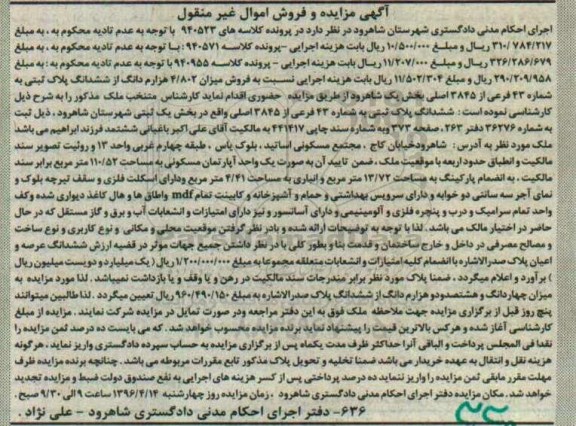 آگهی مزایده و فروش اموال غیر منقول
اجرای احکام مدنی دادگستری شهرستان شاهرود در نظر دارد در پرونده کلاسه های ۹۴۰۵۲۳ با توجه به عدم تادیه محکوم به ، به مبلغ
۳۱۰/۷۸۴/۲۱۷ ریال و مبلغ ۱۰/۵۰۰/۰۰۰ ریال بابت هزینه اجرایی -پرونده کلاسه ۹۴۰۵۷۱ : با توجه به عدم تادیه محکوم به ، به مبلغ
۳۲۶/۲۸۶/۶۷۹ ریال و مبلغ ۱۱/۲۰۷/۰۰۰ ریال بابت هزینه اجرایی - پرونده کلاسه ۹۴۰۹۵۵ با توجه به عدم تادیه محکوم به ، به مبلغ
۲۹۰/۲۰۹/۹۵۸ ریال و مبلغ ۱۱/۵۰۲/۳۰۴ ریال بابت هزینه اجرایی نسبت به فروش میزان ۴/۸۰۲ هزارم دانگ از ششدانگ پلاک ثبتی به
شماره ۴۳ فرعی از ۳۸۴۵ اصلی بخش یک شاهرود از طریق مزایده حضوری اقدام نماید کارشناس منتخب ملک مذکور را به شرح ذیل
کارشناسی نموده است : ششدانگ پلاک ثبتی به شماره ۴۳ فرعی از ۳۸۴۵ اصلی واقع در بخش یک ثبتی شهرستان شاهرود ، ذیل ثبت
به شماره ۳۶۲۷۶ دفتر ۲۶۳، صفحه ۳۷۳ وبه شماره سند چاپی ۴۴۱۴۱۷ به مالکیت آقای علی اکبر باغبانی ششتمد فرزند ابراهیم می باشد
ملک مورد نظر به آدرس: شاهرودخیابان کاج ، مجتمع مسکونی اساتید ، بلوک یاس ، طبقه چهارم غربی واحد ۱۳ و رولیت تصویر سند
مالکیت و انطباق حدود اربعه با موقعیت ملک ، ضمن تایید آن به صورت یک واحد آپارتمان مسکونی به مساحت ۱۱۰/۵۲ متر مربع برابر سند
مالکیت ، به انضمام پارکینگ به مساحت ۱۳/۷۲ متر مربع و انباری به مساحت ۴/۴۱ متر مربع ودارای اسکلت فلزی و سقف تیرچه بلوک و
نمای آجر سه سانتی دو خوابه و دارای سرویس بهداشتی و حمام و آشپزخانه و کابینت تمام mdf واطاق ها و هال کاغذ دیواری شده وکف
واحد تمام سرامیک و درب و پنجره فلزی و آلومینیمی و دارای آسانسور و نیز دارای امتیازات و انشعابات آب و برق و گاز مستقل که در حال
حاضر در اختیار مالک می باشد . لذا با توجه به توضیحات ارائه شده و بادر نظر گرفتن موقعیت محلی و مکانی و نوع کاربری و نوع ساخت
و مصالح مصرفی در داخل و خارج ساختمان و قدمت بنا و بطور کلی با در نظر داشتن جمیع جهات موثر در قضیه ارزش ششدانگ عرصه و
اعیان پلاک صدرالاشاره باانضمام کلیه امتیازات و انشعابات متعلقه مجموعا به مبلغ ۱/۲۰۰/۰۰۰/۰۰۰ ریال ( یک میلیارد و دویست میلیون ریال
) برآورد و اعلام میگردد ، ضمنا پلاک مورد نظر برابر مندرجات سند مالکیت در رهن و یا وقف و یا بازداشت نمیباشد . لذا مورد مزایده به
میزان چهاردانگ و هشتصدودو هزارم دانگ از ششدانگ پلاک صدرالاشاره به مبلغ ۹۶۰/۴۹۰/۱۵۰ ریال تعیین میگردد . لذا طالبین میتوانند
پنج روز قبل از برگزاری مزایده جهت ملاحظه ملک فوق به این دفتر مراجعه ودر صورت تمایل در مزایده شرکت نمایند . مزایده از مبلغ
کارشناسی آغاز شده و هرکس بالاترین قیمت را پیشنهاد نماید برنده مزایده محسوب خواهد شد . که می بایست ده درصد ثمن مزایده را
نقدا فی المجلس پرداخت و الباقی آنرا حداکثر ظرف مدت یکماه پس از برگزاری مزایده به حساب سپرده دادگستری واریز نماید ، هرگونه
هزینه نقل و انتقال به عهده خریدار می باشد ضمنا تخلیه و تحویل پلاک مذکور تابع مقررات مربوطه می باشد . چنانچه برنده مزایده ظرف
مهلت مقرر مابقی ثمن مزایده را واریز ننماید ده درصد پرداختی پس از کسر هزینه های اجرایی به نفع صندوق دولت ضبط و مزایده تجدید
خواهد شد. مکان مزایده دفتر اجرای احکام مدنی دادگستری شاهرود ، زمان مزایده روز چهارشنبه ۱۳۹۶/۴/۱۴ ساعت ۹ الی ۹/۳۰ صبح .
۶۳۶- دفتر اجرای احکام مدنی دادگستری شاهرود - علی نژاد .